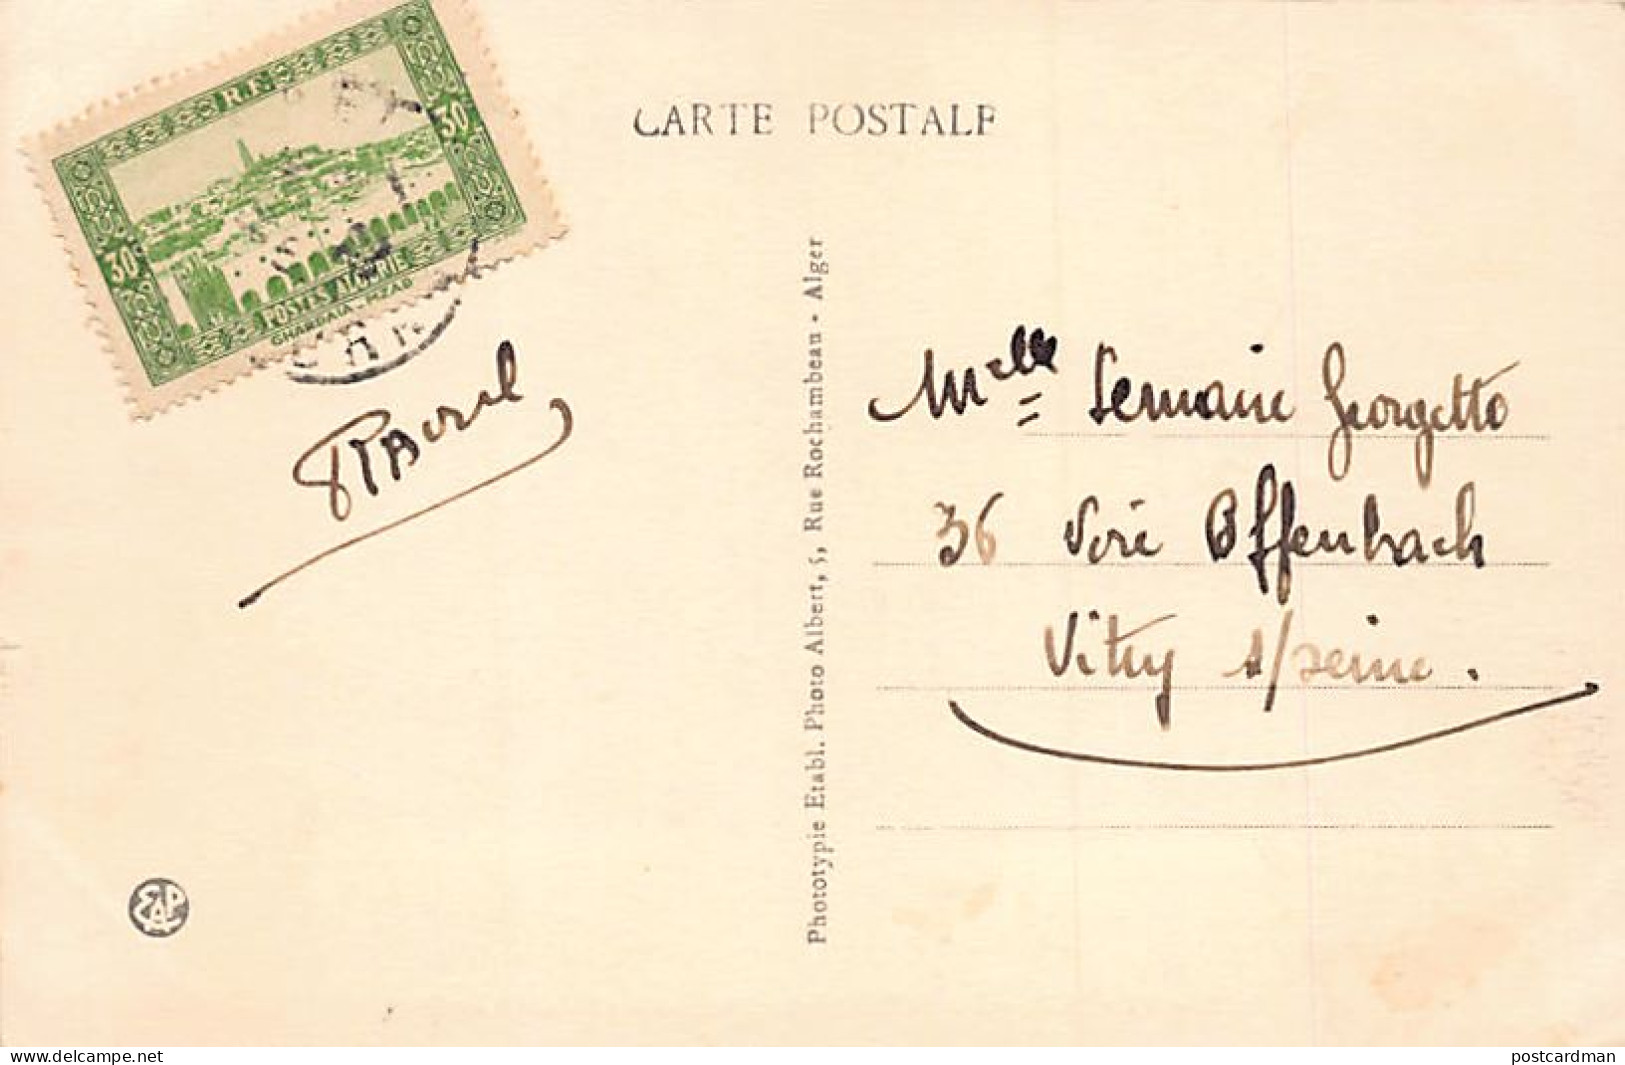 CARTE POSTALE
R.F.
30c
30c
POSTES ALGÉRIE
GHARDAIA-MZAB
Phototypie Etabl. Photo Albert, 5, Rue Rochambeau - Alger
EAP
Melle Georgette
36 Voie Offenbach
Vitry s/seine.
www.delcampe.net
postcardman